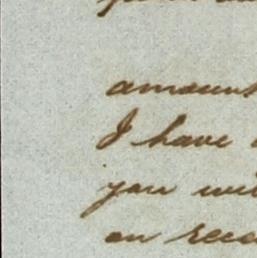 amount
I have
you wil
on rece